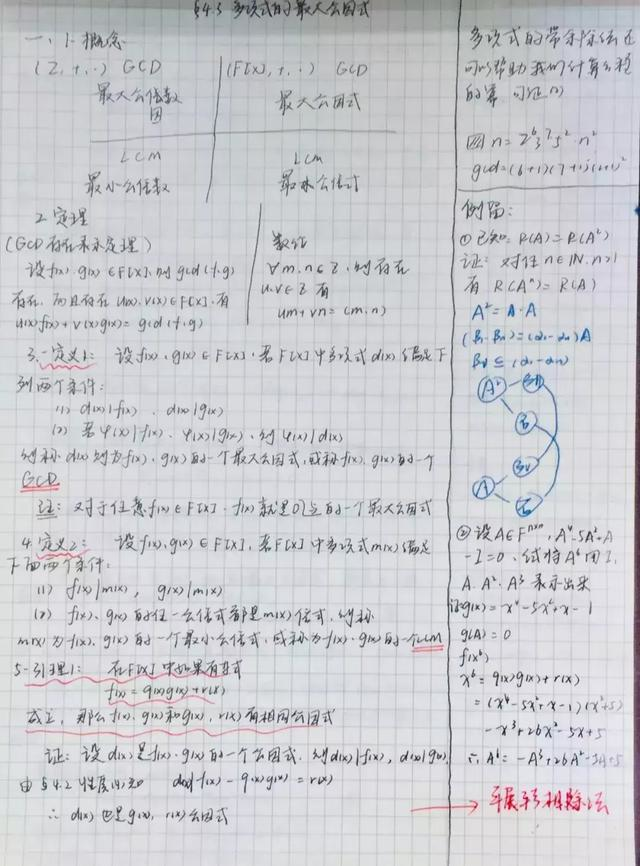 §4.3 多项式的最大公因式
一、1. 概念
(Z, +, ·) GCD
最大公倍数
因
(F[x], +, ·) GCD
最大公因式
LCM
最小公倍数
LCM
最小公倍式
2. 定理
(GCD存在表示定理)
设f(x), g(x)∈F[x], 则 gcd(f, g)
存在, 而且存在 u(x), v(x)∈F[x], 有
u(x)f(x)+v(x)g(x)= gcd(f, g)
数论
∀m, n∈Z, 则存在
u, v∈Z 有
um+vn=(m, n)
3. 定义1: 设f(x), g(x)∈F[x], 若F[x]中多项式d(x)满足下
列两个条件:
(1) d(x)|f(x), d(x)|g(x)
(2) 若φ(x)|f(x), φ(x)|g(x), 则φ(x)|d(x)
则称d(x)则为f(x), g(x)的一个最大公因式, 或称f(x), g(x)的一个
GCD
注: 对于任意f(x)∈F[x], f(x)就是0与的一个最大公因式
4. 定义2: 设f(x), g(x)∈F[x], 若F[x]中多项式m(x)满足
下面两个条件:
(1) f(x)|m(x), g(x)|m(x)
(2) f(x), g(x)的任一公倍式都是m(x)倍式, 则称
m(x)为f(x), g(x)的一个最小公倍式, 或称为f(x), g(x)的一个LCM
5. 引理1: 在F[x]中如果有等式
f(x)=q(x)g(x)+r(x)
成立, 那么f(x), g(x)和g(x), r(x)有相同公因式
证: 设d(x)是f(x), g(x)的一个公因式, 则d(x)|f(x), d(x)|g(x),
由§4.2 性质(4)知 d(x)|f(x)-q(x)g(x)=r(x)
∴ d(x)也是g(x), r(x)公因式
多项式的带余除法还
可以帮助我们计算
的幂
n=2⁶3⁷5²·n²
例题:
①已知: R(A)=R(A²)
证: 对任n∈N, n>1
有 R(Aⁿ)=R(A)
A²=A·A
(β₁…βn)=(α₁…αn)A
A²
A
②设A∈Fⁿˣⁿ, A⁴-5A²+A
-I=0, 试将A⁶用I,
A, A², A³ 表示出来
证: g(x)=x⁴-5x²+x-1
g(A)=0
f(x⁶)
x⁶=q(x)g(x)+r(x)
=(x⁴-5x²+x-1)(x²+5)
-x³+26x²-5x+5
∴A⁶=-A³+26A²-5A+5
→ 辗转相除法